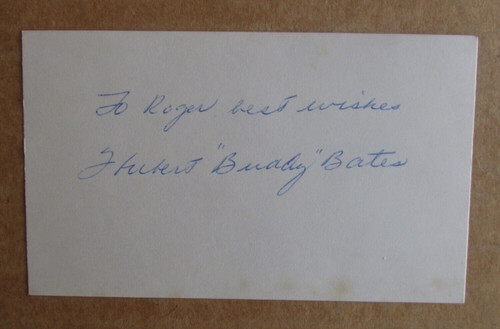 To Roger, best wishes
Hubert "Buddy" Bates